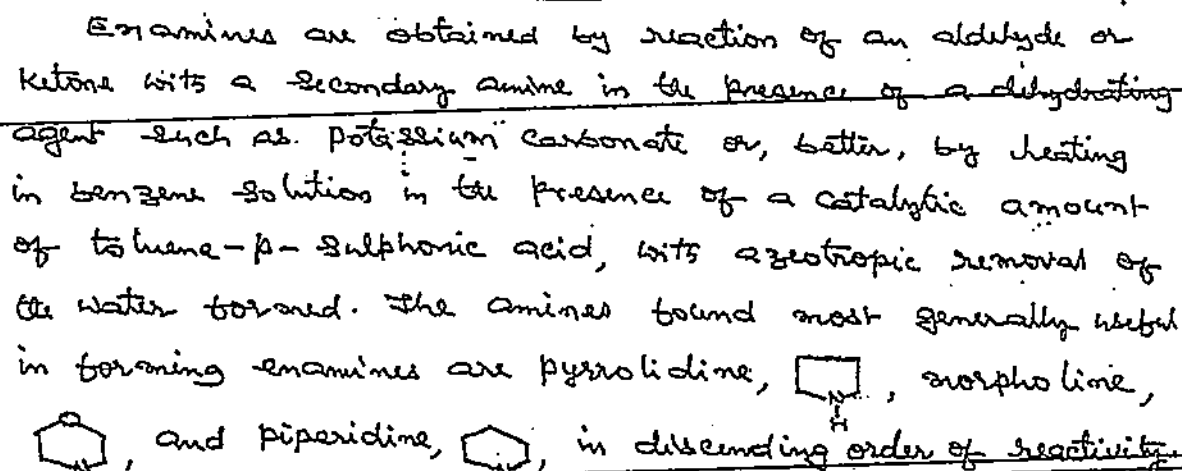 Enamines are obtained by reaction of an aldehyde or
Ketone with a secondary amine in the presence of a dehydrating
agent such as potassium carbonate or, better, by heating
in benzene solution in the presence of a catalytic amount
of toluene-p-sulphonic acid, with azeotropic removal of
the water formed. The amines found most generally useful
in forming enamines are pyrrolidine, N H, morpholine,
O N, and piperidine, N, in descending order of reactivity.